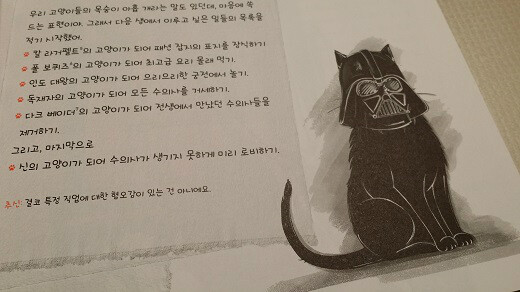 우리 고양이들의 목숨이 아홉 개라는 말도 있던데, 마음에 쏙
드는 표현이야. 그래서 다음 생에서 이루고 싶은 일들의 목록을
적기 시작했어.
칼 라거펠트의 고양이가 되어 패션 잡지의 표지를 장식하기
폴 보퀴즈의 고양이가 되어 최고급 요리 몰래 먹기.
인도 대왕의 고양이가 되어 으리으리한 궁전에서 놀기.
독재자의 고양이가 되어 모든 수의사를 거세하기.
다크 베이더의 고양이가 되어 전생에서 만났던 수의사들을
제거하기.
그리고, 마지막으로
신의 고양이가 되어 수의사가 생기지 못하게 미리 로비하기.
추신: 결코 특정 직업에 대한 혐오감이 있는 건 아니에요.